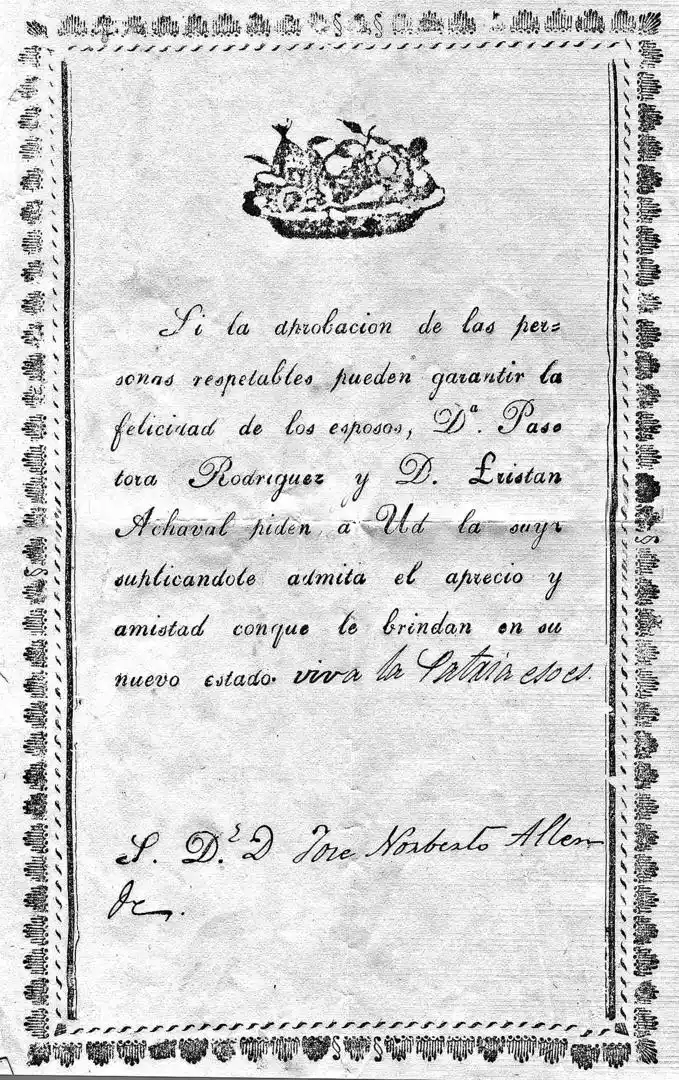 Si la aprobacion de las per=
sonas respetables pueden garantir la
felicidad de los esposos, D.ª Pas=
tora Rodriguez y D. Tristan
Achaval piden a Ud la suya
suplicandole admita el aprecio y
amistad conque le brindan en su
nuevo estado. viva la Patria eso es.
S. D.r D Jose Norberto Allen
de.